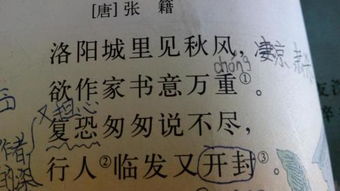 [唐]张 籍
洛阳城里见秋风，凄凉
chóng
欲作家书意万重①。
又担心
复恐匆匆说不尽，
作者
行人②临发又开封③。